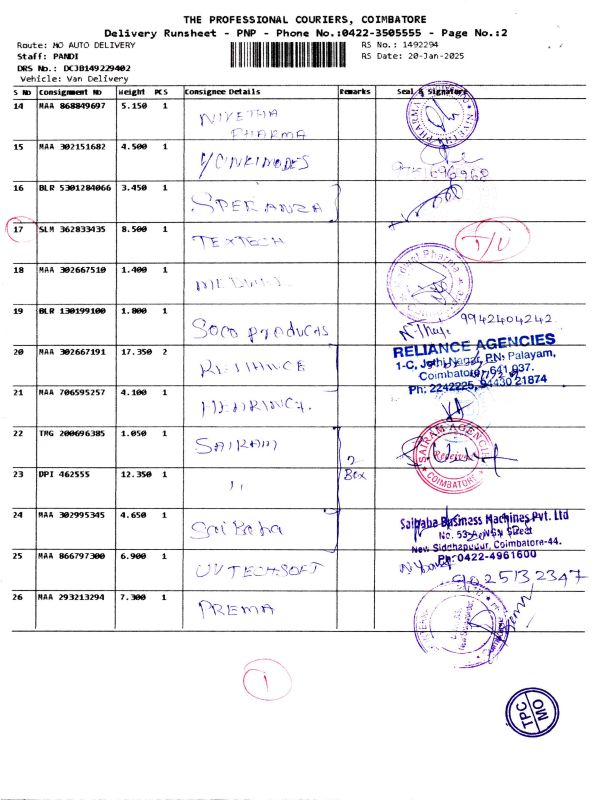 THE PROFESSIONAL COURIERS, COIMBATORE
Delivery Runsheet - PNP - Phone No.:0422-3505555 - Page No.:2
Route: MO AUTO DELIVERY
RS No.: 1492294
Staff: PANDI
RS Date: 20-Jan-2025
DRS No.: DCJB149229402
Vehicle: Van Delivery
S No Consignment No Weight PCS Consignee Details Remarks Seal & Signature
14 MAA 868849697 5.150 1 NIVETHA PHARMA
15 MAA 302151682 4.500 1
16 BLR 5301284066 3.450 1 SPERANZA
17 SLM 362833435 8.500 1 TEXTECH
18 MAA 302667510 1.400 1
19 BLR 130199100 1.800 1 Soco products
9942404242
20 MAA 302667191 17.350 2 RELIANCE
RELIANCE AGENCIES
1-C, Jothi Nagar, P.N. Palayam,
Coimbatore - 641 037.
Ph: 2242225, 94430 21874
21 MAA 706595257 4.100 1
22 TMG 200696385 1.050 1 SAIRAM
SAIRAM AGENCIES
Received
COIMBATORE
23 DPI 462555 12.350 1 "
2 Box
24 MAA 302995345 4.650 1 Sai Baba
Saibaba Business Machines Pvt. Ltd
New Siddhapudur, Coimbatore-44.
Ph: 0422-4961600
25 MAA 866797300 6.900 1 UVTECHSOFT
9025132347
26 MAA 293213294 7.300 1 PREMA
1
TPC
MO